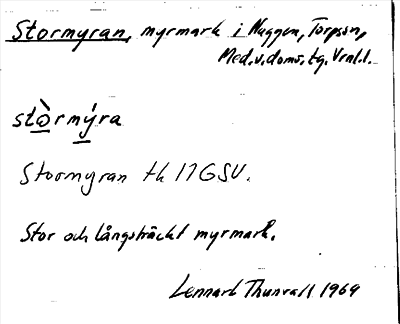 Stormyran, myrmark i Naggen, Torpson,
Med.v.doms.tg. Vrnl.l.
stòrmýra
Stormyran th 17 GSV.
Stor och långsträckt myrmark.
Lennart Thunvall 1969